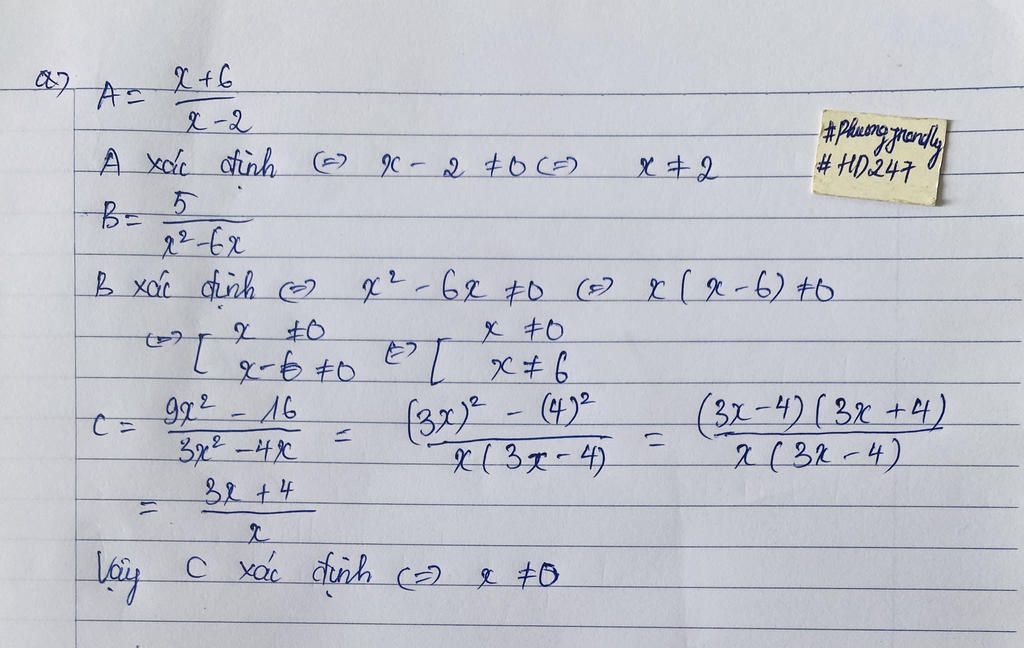 a) A = \frac{x+6}{x-2}
A xác định <=> x - 2 ≠ 0 <=> x ≠ 2
#Phuongtrandly
#HD247
B = \frac{5}{x² - 6x}
B xác định <=> x² - 6x ≠ 0 <=> x(x-6) ≠ 0
<=> [ x ≠ 0 <=> [ x ≠ 0
x - 6 ≠ 0 x ≠ 6
C = \frac{9x² - 16}{3x² - 4x} = \frac{(3x)² - (4)²}{x(3x-4)} = \frac{(3x-4)(3x+4)}{x(3x-4)}
= \frac{3x+4}{x}
Vậy C xác định <=> x ≠ 0